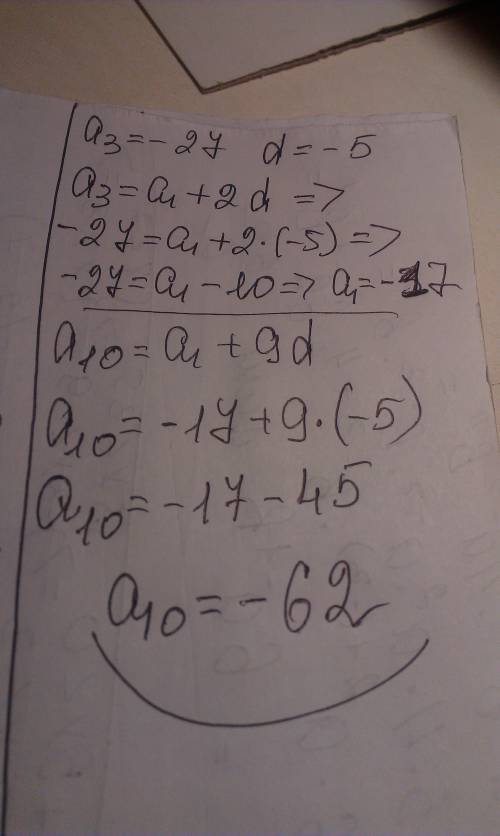 a₃ = -27   d = -5
a₃ = a₁ + 2d =>
-27 = a₁ + 2·(-5) =>
-27 = a₁ - 10 => a₁ = -17
a₁₀ = a₁ + 9d
a₁₀ = -17 + 9·(-5)
a₁₀ = -17 - 45
a₁₀ = -62